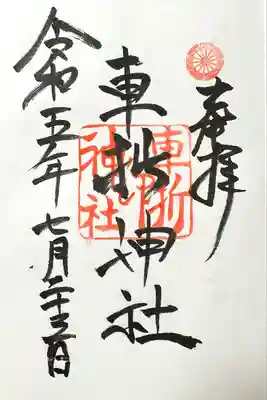 奉拝
車折神社
車折神社
令和五年七月二十三日